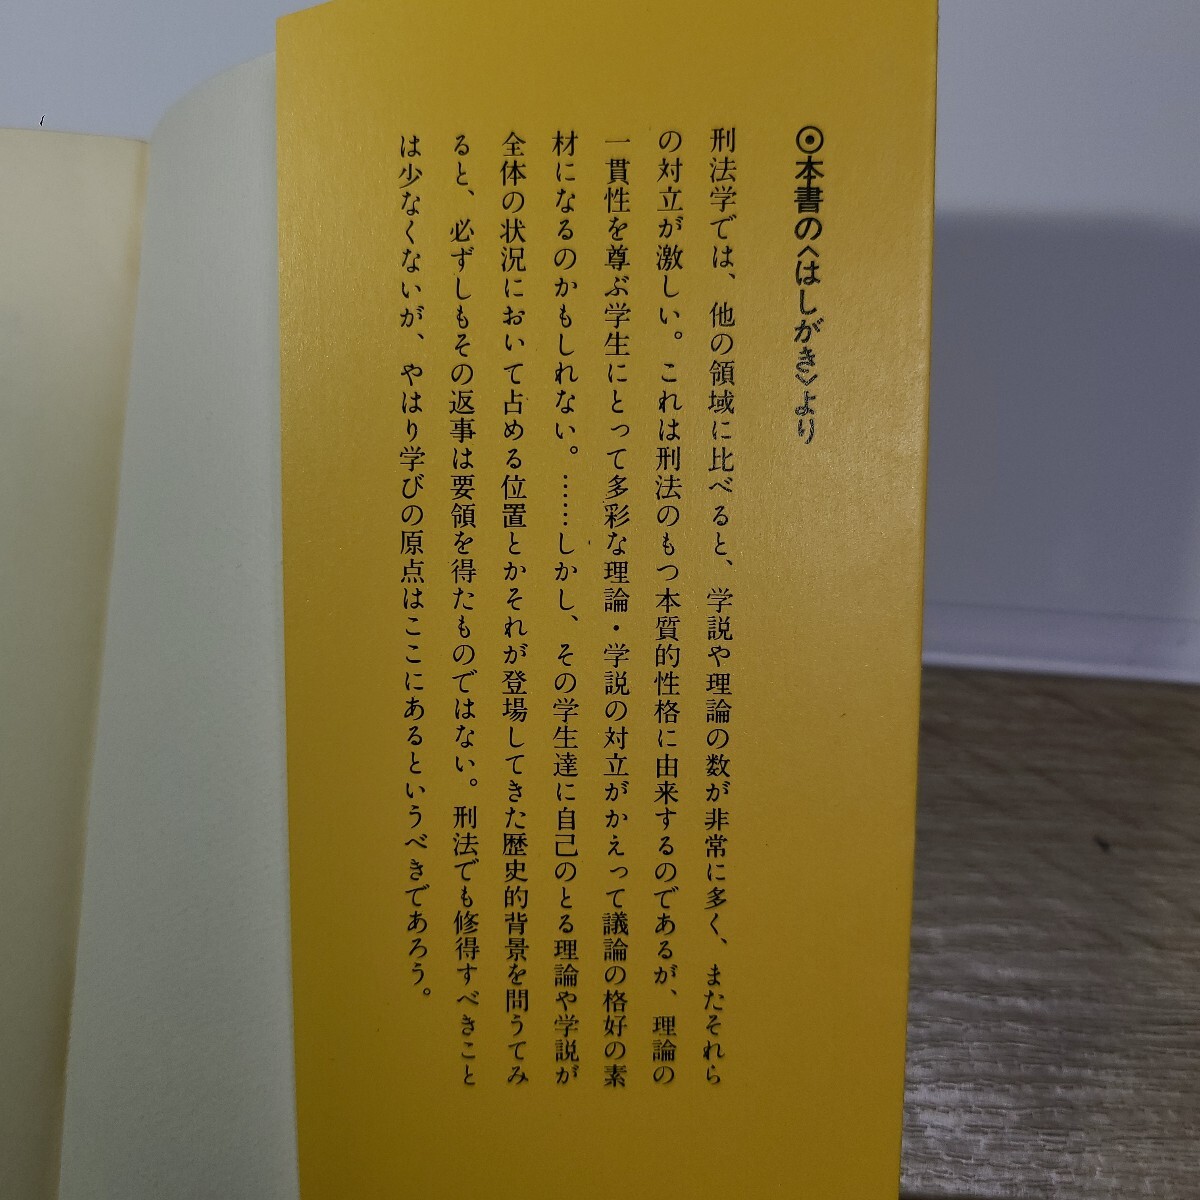 ⦿本書の〈はしがき〉より
刑法学では、他の領域に比べると、学説や理論の数が非常に多く、またそれら
の対立が激しい。これは刑法のもつ本質的性格に由来するのであるが、理論の
一貫性を尊ぶ学生にとって多彩な理論・学説の対立がかえって議論の格好の素
材になるのかもしれない。……しかし、その学生達に自己のとる理論や学説が
全体の状況において占める位置とかそれが登場してきた歴史的背景を問うてみ
ると、必ずしもその返事は要領を得たものではない。刑法でも修得すべきこと
は少なくないが、やはり学びの原点はここにあるというべきであろう。